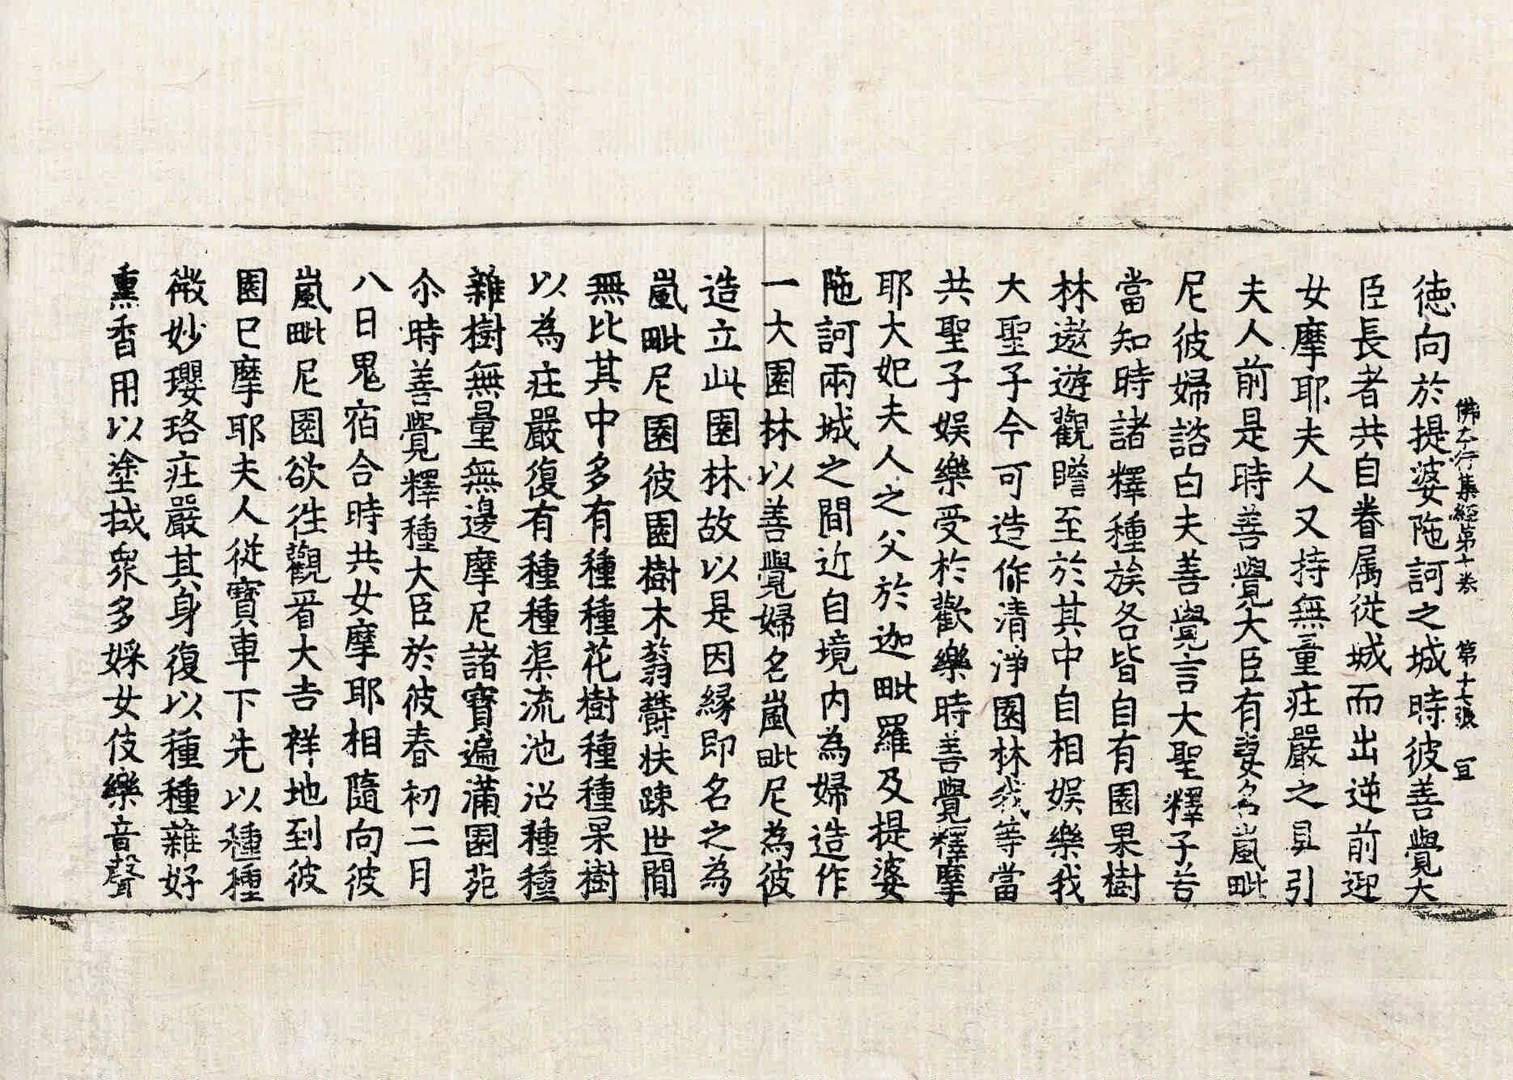 佛本行集經第七卷 第十七張 冝
徳向於提婆陁訶之城時彼善覺大
臣長者共自眷属從城而出逆前迎
女摩耶夫人又持無量庄嚴之具引
夫人前是時善覺大臣有妻名嵐毗
尼彼婦諮白夫善覺言大聖釋子若
當知時諸釋種族各皆自有園果樹
林遨遊觀瞻至於其中自相娛樂我
大聖子今可造作清淨園林我等當
共聖子娛樂受於歡樂時善覺釋摩
耶大妃夫人之父於迦毗羅及提婆
陁訶兩城之間近自境内為婦造作
一大園林以善覺婦名嵐毗尼為彼
造立此園林故以是因緣即名之為
嵐毗尼園彼園樹木蓊欝扶踈世間
無比其中多有種種花樹種種果樹
以為庄嚴復有種種渠流池沼種種
雜樹無量無邊摩尼諸寶遍滿園苑
尒時善覺釋種大臣於彼春初二月
八日鬼宿合時共女摩耶相隨向彼
嵐毗尼園欲往觀看大吉祥地到彼
園已摩耶夫人從寶車下先以種種
微妙瓔珞庄嚴其身復以種種雜好
熏香用以塗拭衆多婇女伎樂音聲